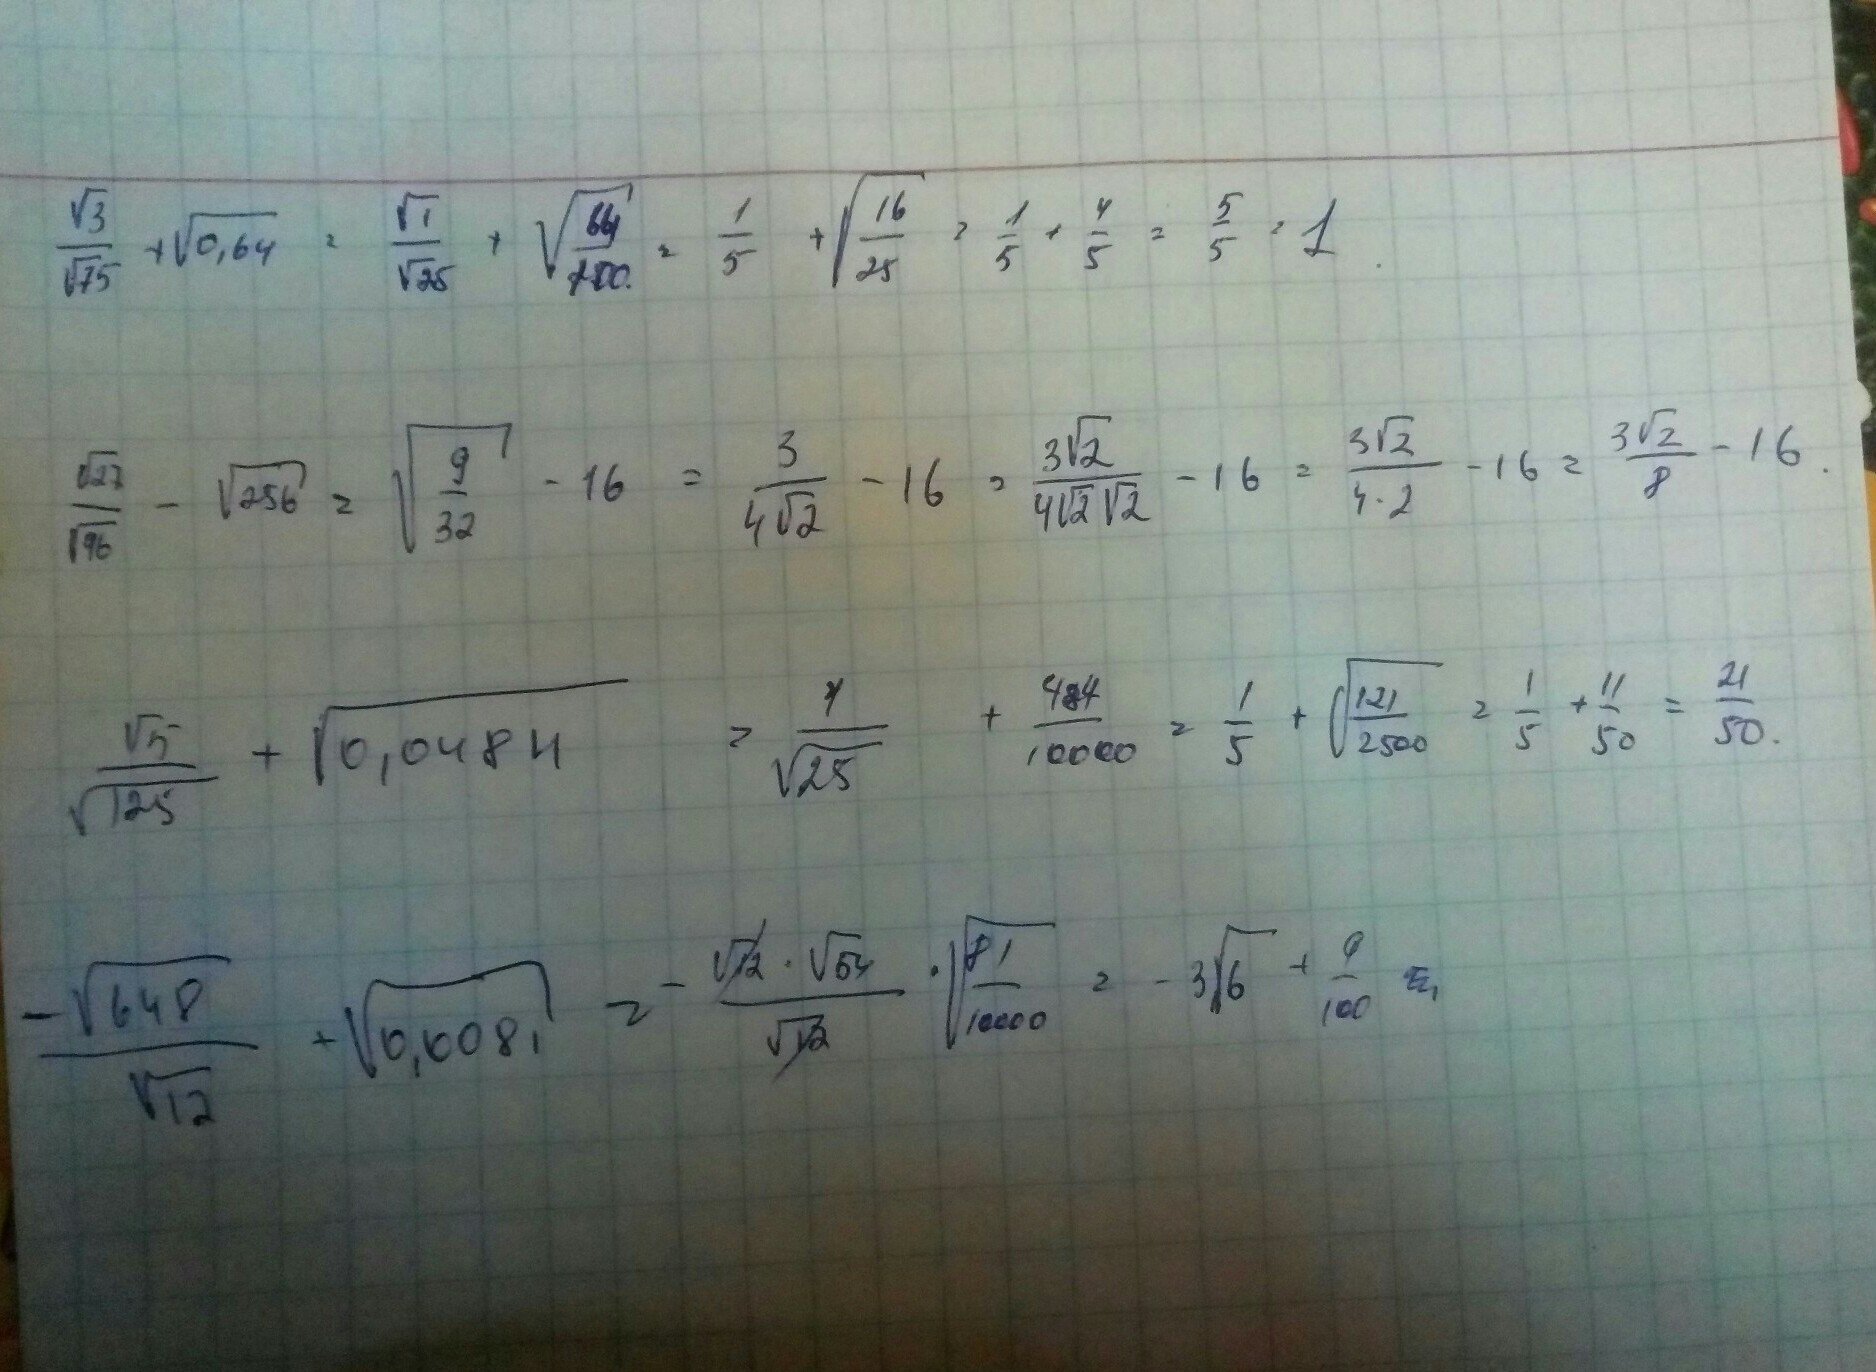 √3/√75 + √0,64 = √1/√25 + √(64/100) = 1/5 + √(16/25) = 1/5 + 4/5 = 5/5 = 1.
√27/√96 - √256 = √(9/32) - 16 = 3/(4√2) - 16 = 3√2/(4√2√2) - 16 = 3√2/(4·2) - 16 = 3√2/8 - 16.
√5/√125 + √0,0484 = 1/√25 + 484/10000 = 1/5 + √(121/2500) = 1/5 + 11/50 = 21/50.
-√648/√12 + √0,0081 = - √12·√54/√12 · √(81/10000) = -3√6 + 9/100